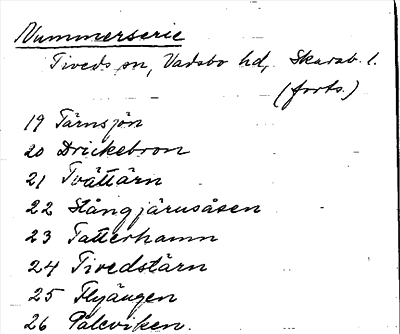 Nummerserie
Tiveds sn, Vadsbo hd, Skarab. l.
(forts.)
19 Tärnsjön
20 Drickebron
21 Tvättärn
22 Stångjärnsåsen
23 Tatterhamn
24 Tivedstärn
25 Flyängen
26 Palsviken.